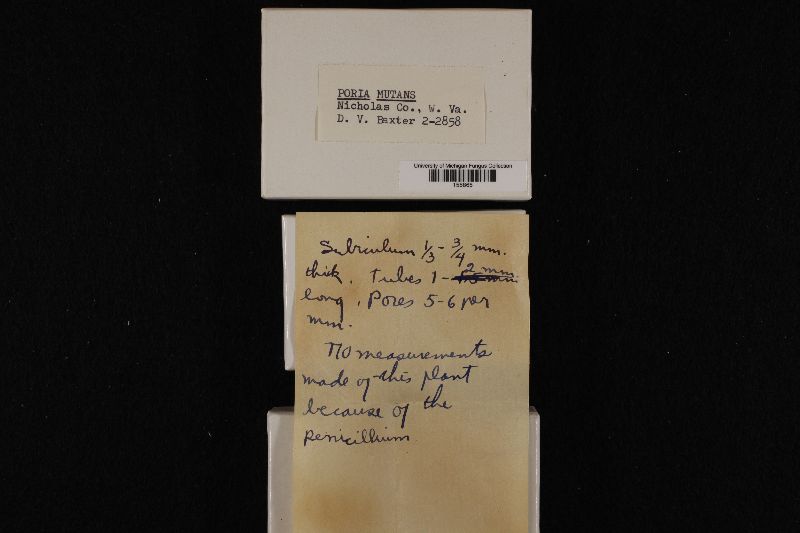 PORIA MUTANS
Nicholas Co., W. Va.
D. V. Baxter 2-2858
University of Michigan Fungus Collection
Subiculum 1/3 - 3/4 mm.
thick. Tubes 1 - 2 mm
long. Pores 5-6 per
mm.
No measurements
made of this plant
because of the
Penicillium